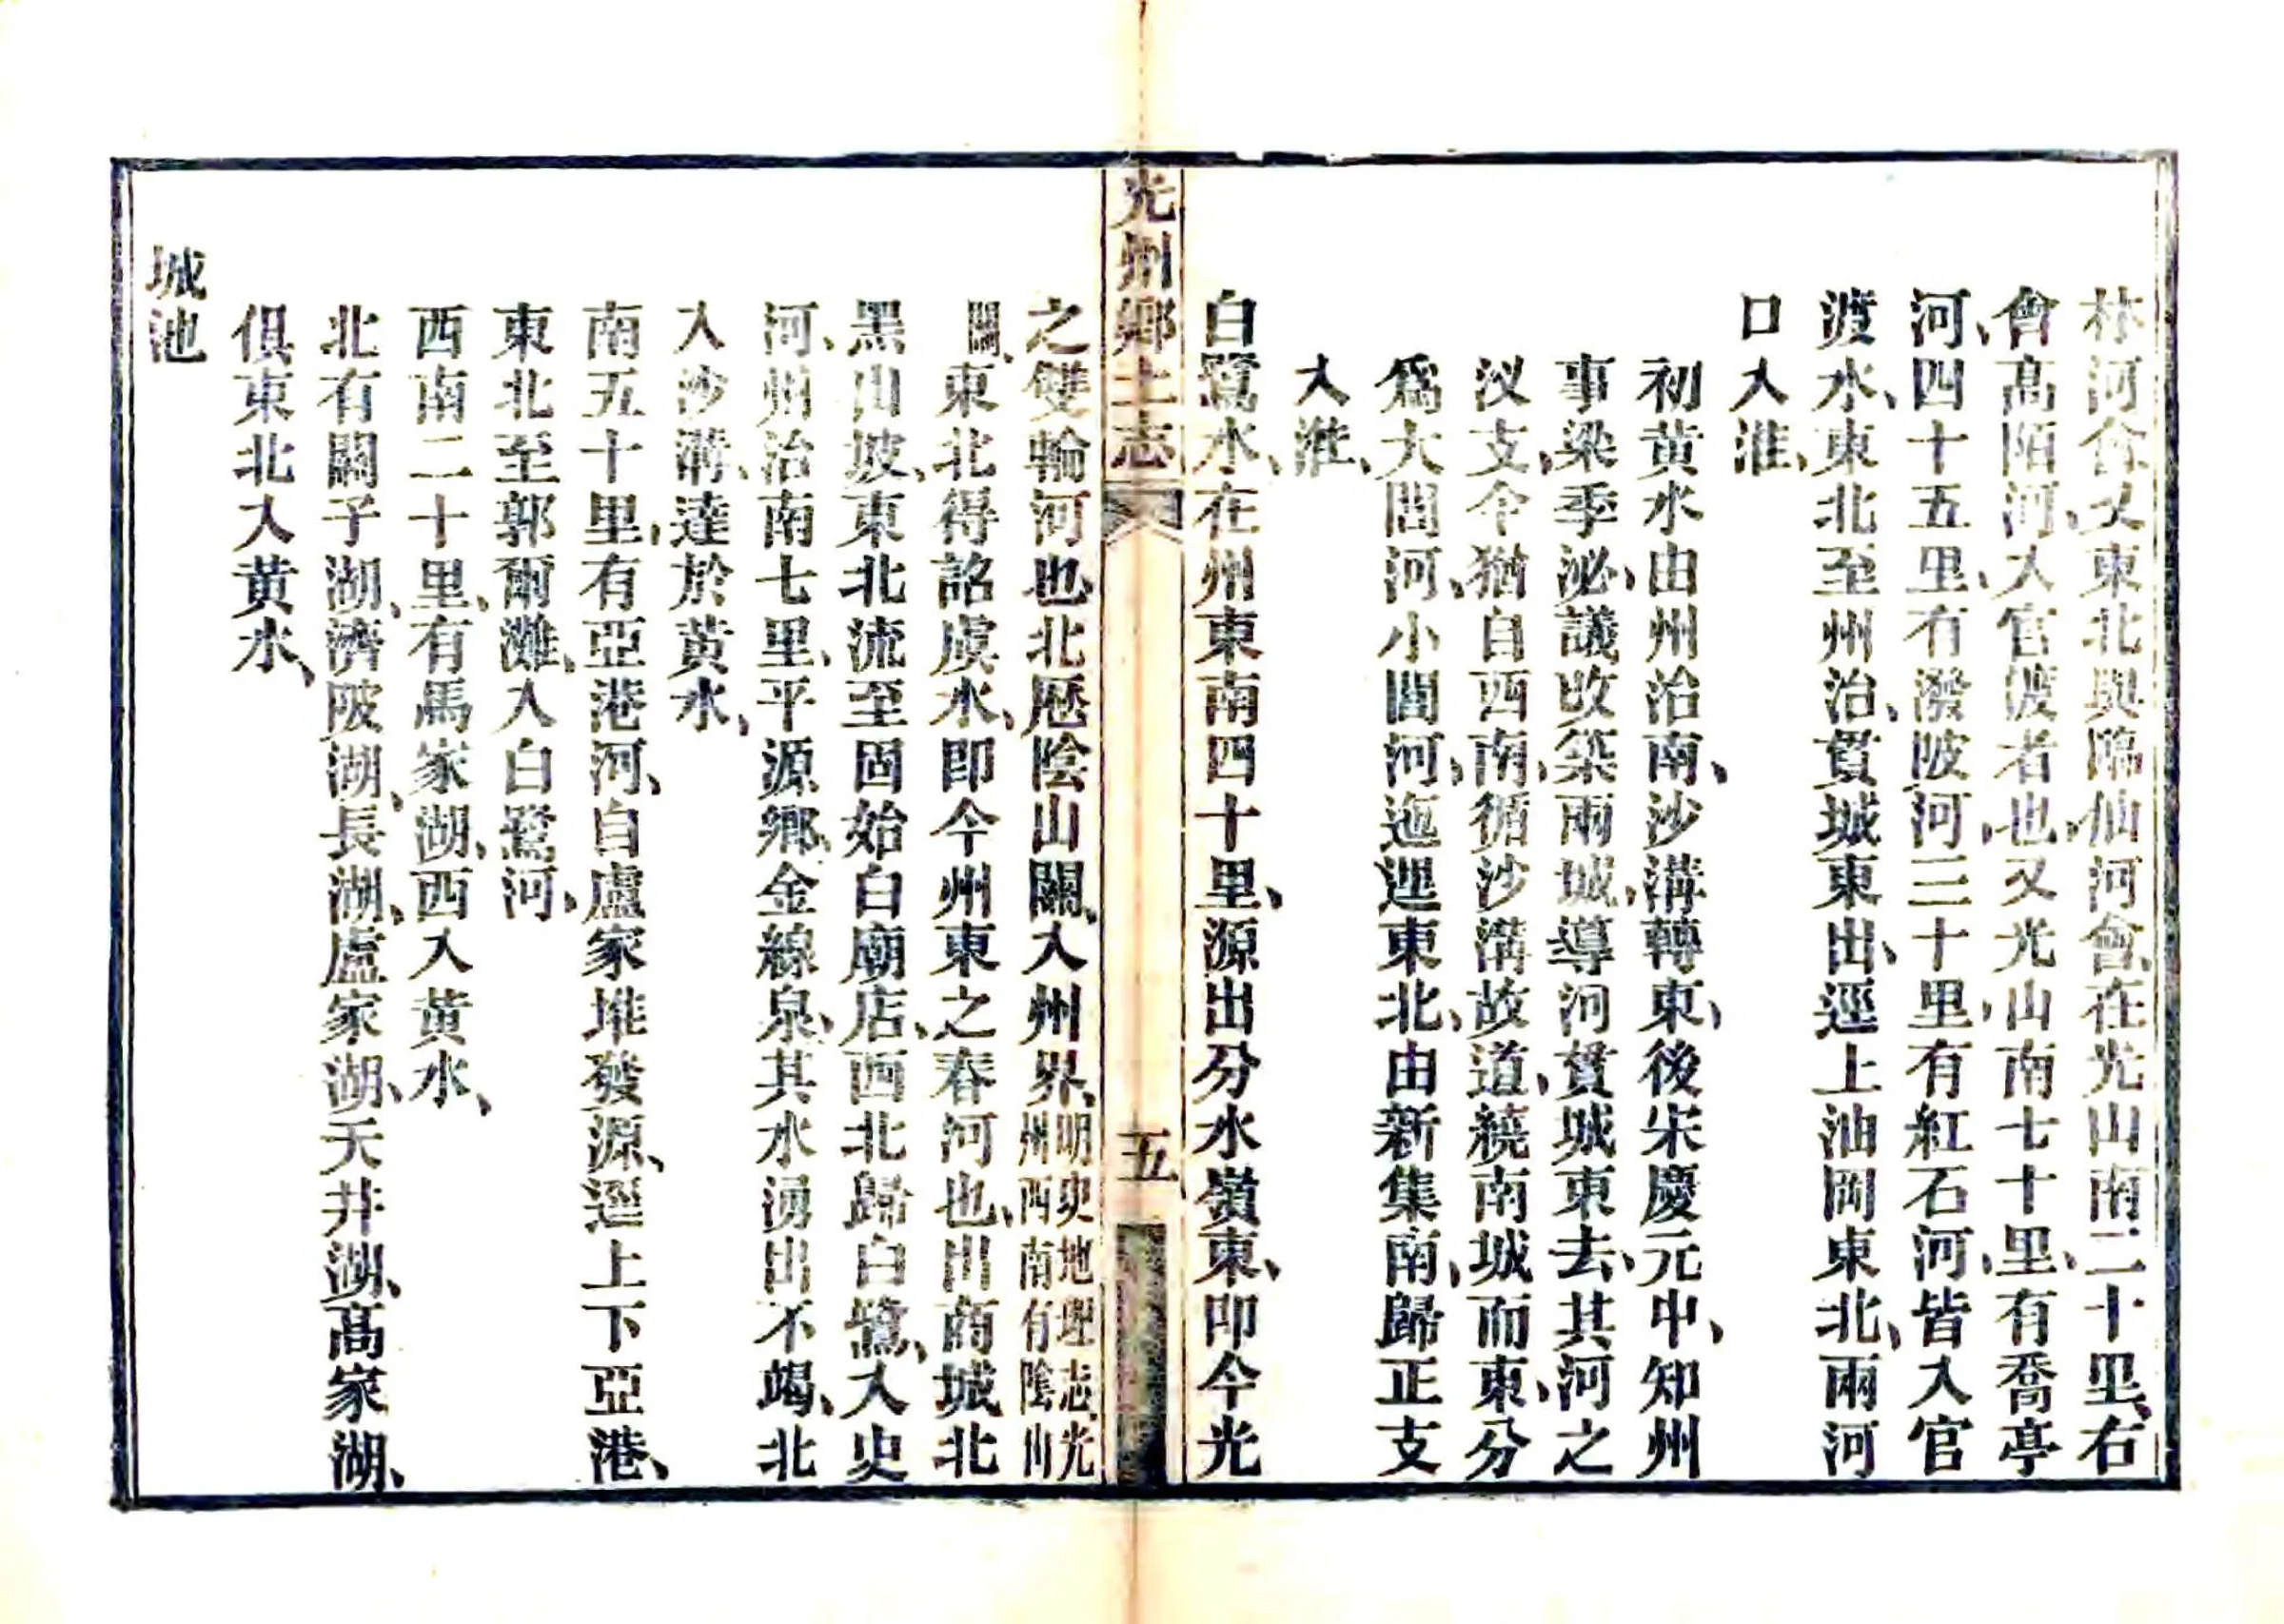 林河會、又東北與臨仙河會、在光山南二十里、右
會高陌河、入官渡者也、又光山南七十里、有喬亭
河、四十五里、有潑陂河、三十里、有紅石河、皆入官
渡水、東北至州治、貫城東出、逕上油岡東北、兩河
口入淮、
初黃水由州治南、沙溝轉東、後宋慶元中、知州
事梁季泌、議改築兩城、導河貫城東去、其河之
汊支、今猶自西南、循沙溝故道、繞南城而東、分
爲大閭河、小閭河、迤邐東北、由新集南、歸正支
入淮、
白鷺水、在州東南四十里、源出分水嶺東、卽今光
光州鄉土志
五
之雙輪河也北歷陰山關、入州界、明史地理志、光
州西南有陰山
關、東北得詔虞水、卽今州東之春河也、出商城北
黑山坡、東北流至固始白廟店、西北歸白鷺、入史
河、州治南七里、平源鄉、金線泉、其水湧出不竭、北
入沙溝、達於黃水、
南五十里、有亞港河、自盧家堆發源、逕上下亞港、
東北至郭爾灘、入白鷺河、
西南二十里、有馬家湖、西入黃水、
北有關子湖、濟陂湖、長湖、盧家湖、天井湖、高家湖、
俱東北入黃水、
城池